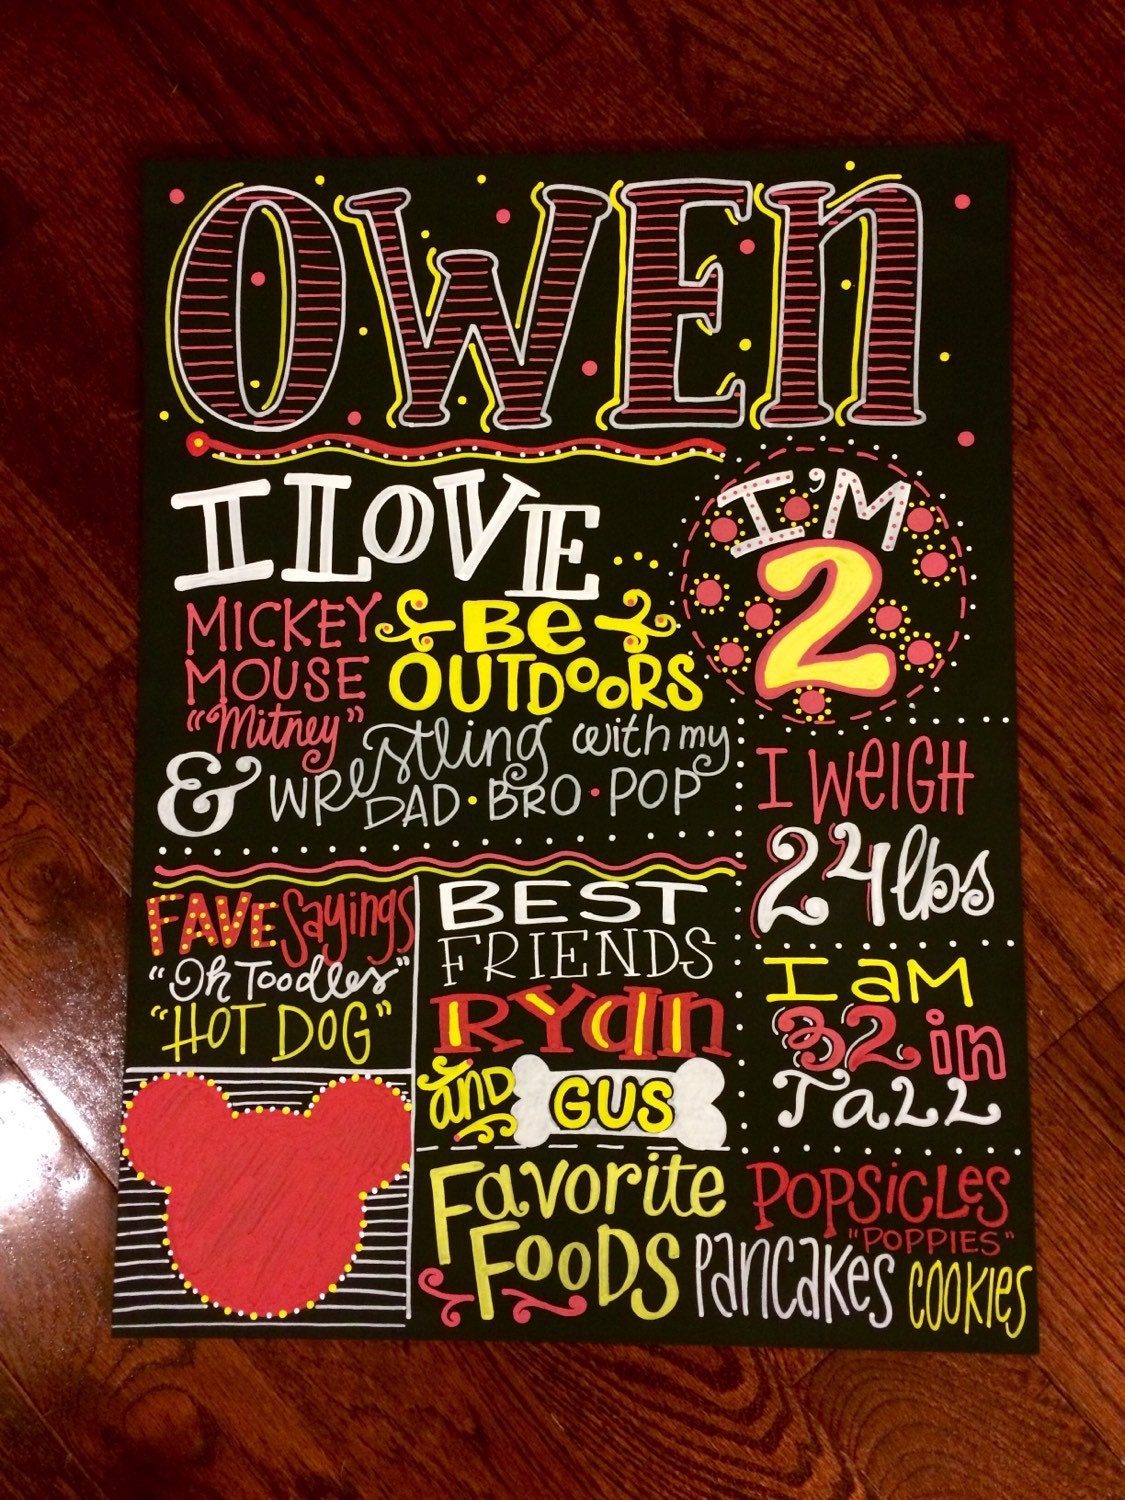 OWEN
I LOVE
MICKEY
MOUSE
"Mitney"
BE
OUTDOORS
& WRestling with my
DAD • BRO • POP
I'M
2
I WEIGH
24lbs
I am
32 in
TALL
FAVE Sayings
"Oh Toodles"
"HOT DOG"
BEST
FRIENDS
RYan
AND GUS
Favorite
FOODS
POPSICLES
"POPPIES"
PANCAKES COOKIES